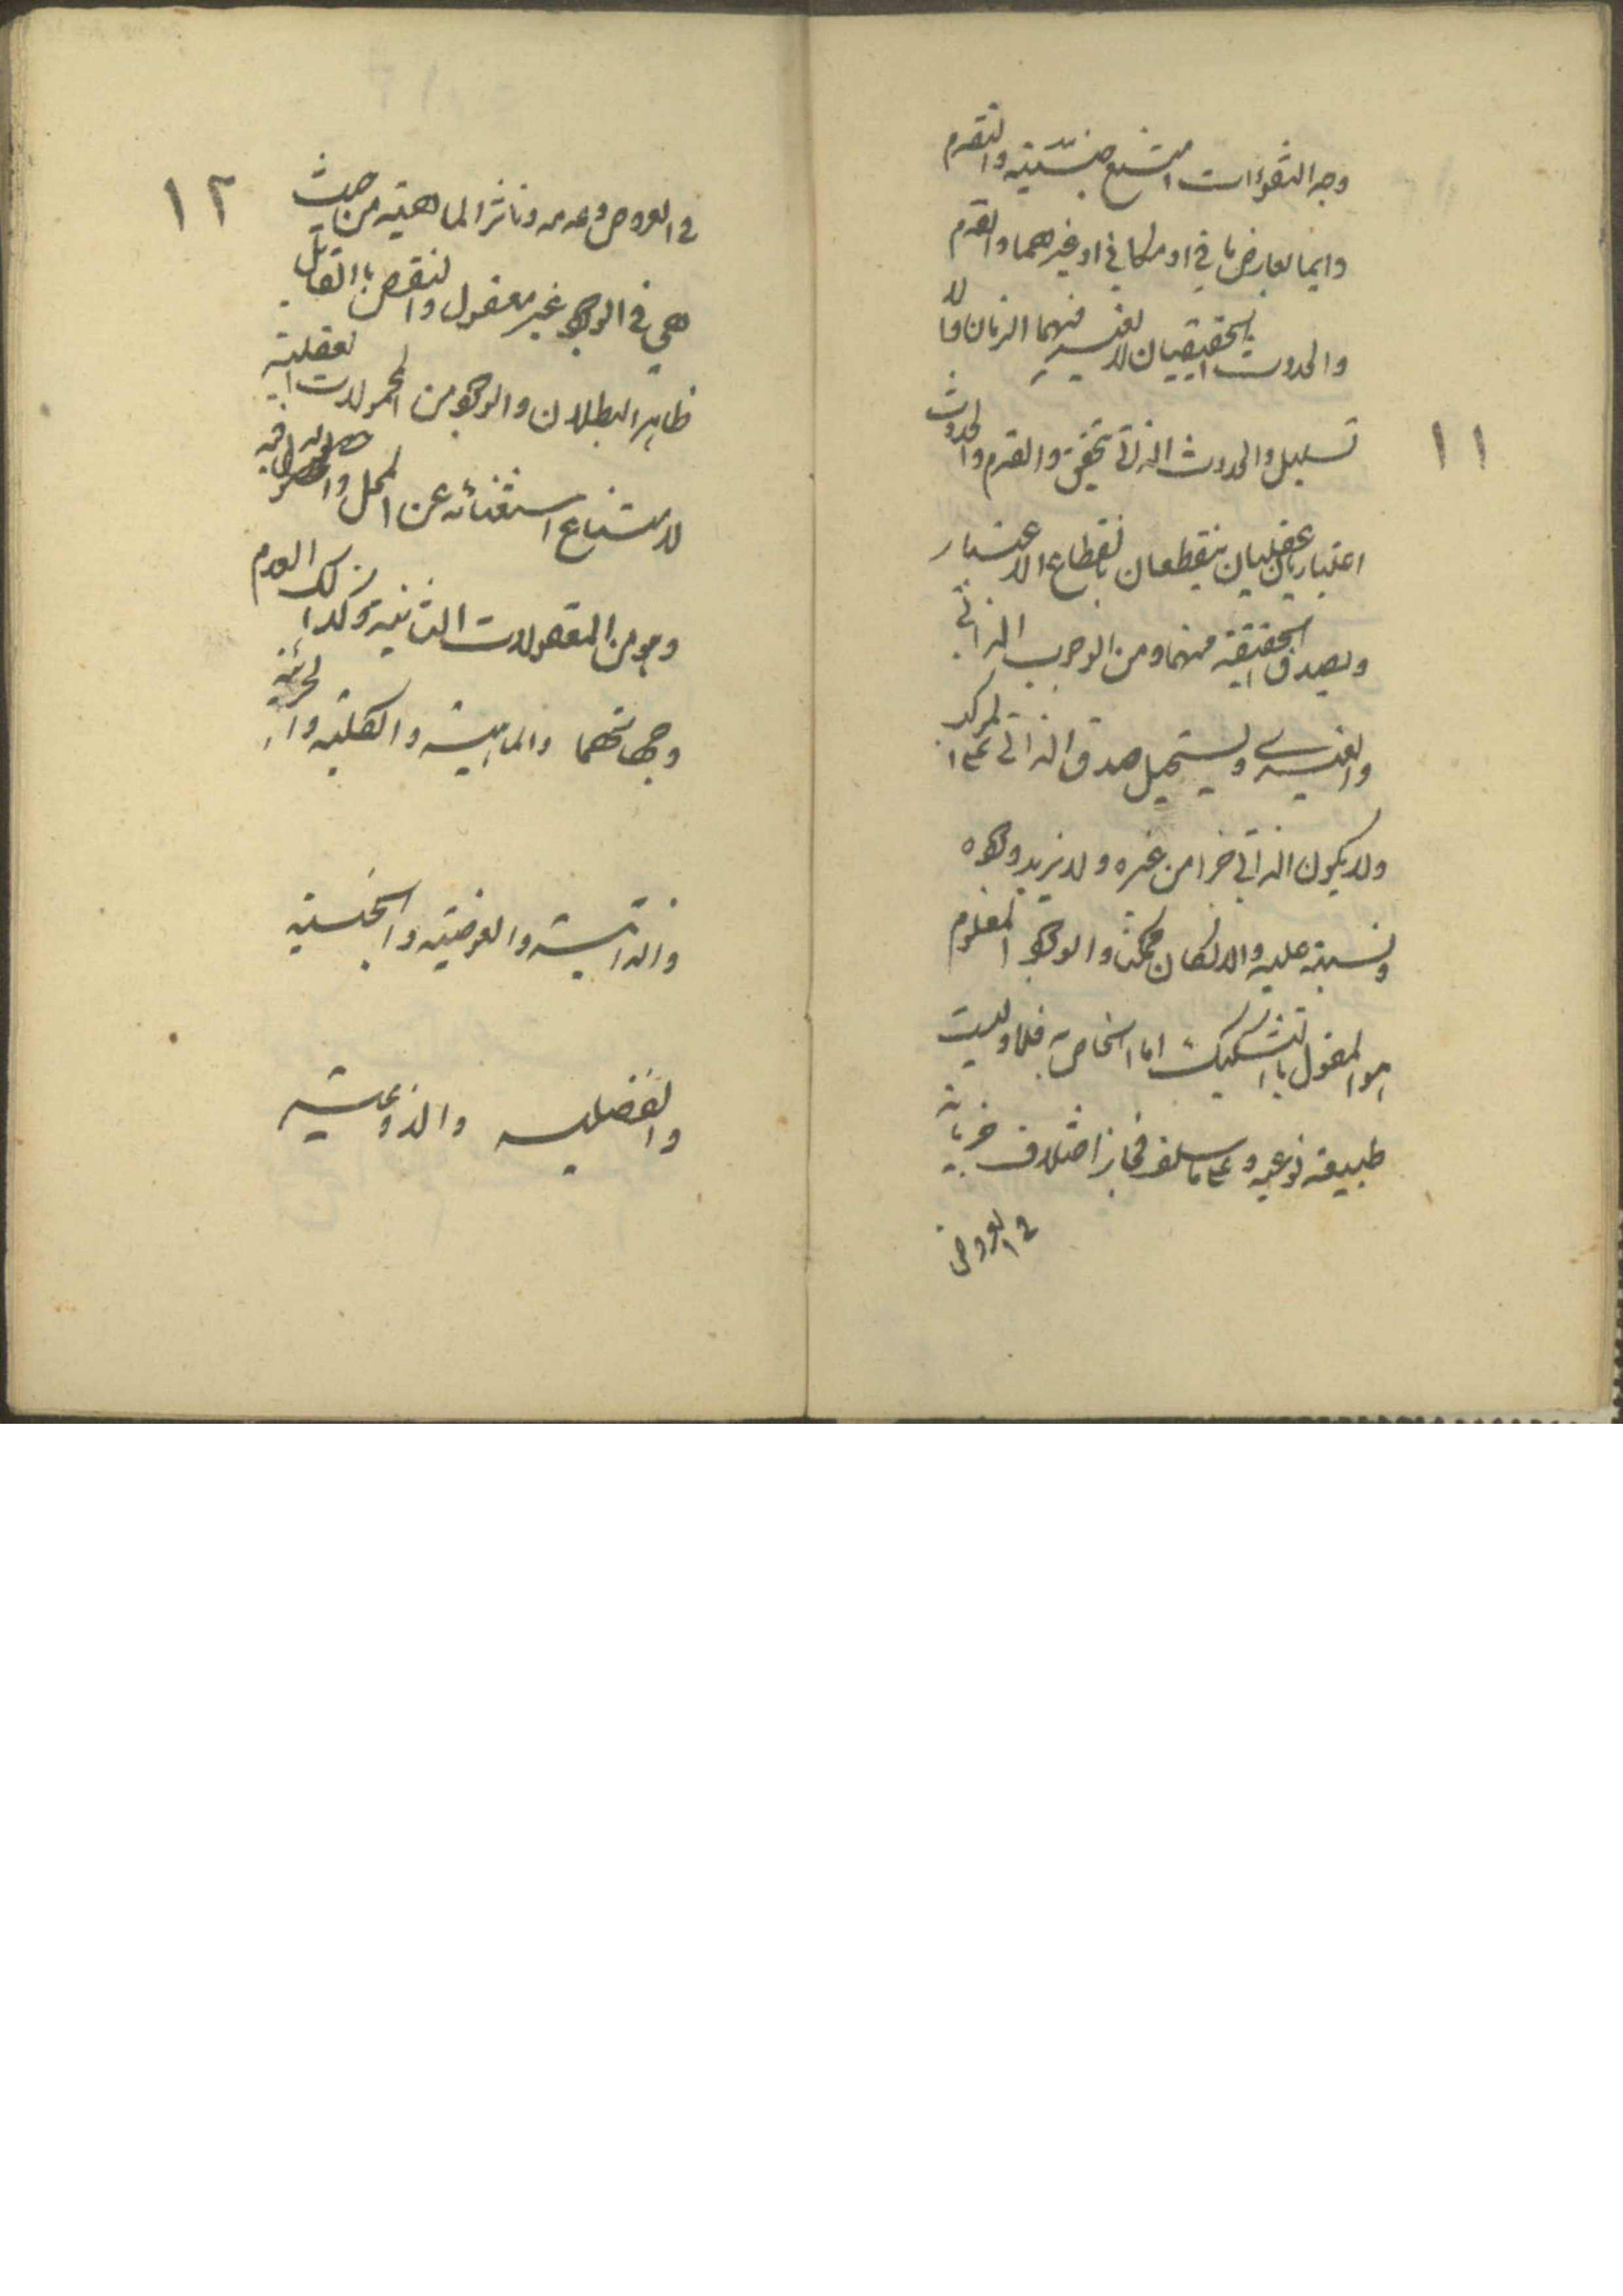 ١١
وجد التفوات امتنع جنسيته والتقدم
دايما لعارض ما في او مكاني او غيرهما والقدم
والحدوث الحقيقيان لا يعتبر فيهما الزمان والا
تسلسل والحدوث الذاتي تحقق والقدم والحدوث
اعتباران عقليان ينقطعان بانقطاع الاعتبار
ويصدق الحقيقة منهما ومن الوجوب الذاتي
والغيري ويستحيل صدق الذاتي على المركب
ولا يكون الذاتي جزا من غيره ولا يزيد وجوده
ونسبته عليه والا لكان ممكنا والوجود المعلوم
هو المقول بالتشكيك اما الخاص به فلا وليست
طبيعة نوعيه وعلى ما سلف فجاز اختلاف جزياته
في العروض
١٢
في العروض وعدمه وتاثر الماهية من حيث
هي في الوجود غير معقول والنقض بالقابل
ظاهر البطلان والوجود من المحمولات العقلية
لامتناع استغنائه عن المحل وحصوله فيه
وهو من المعقولات الثانية وكذلك العدم
وجهاتهما والماهية والكلية والجزئية
والذاتية والعرضية والجنسية
والفصلية والنوعية